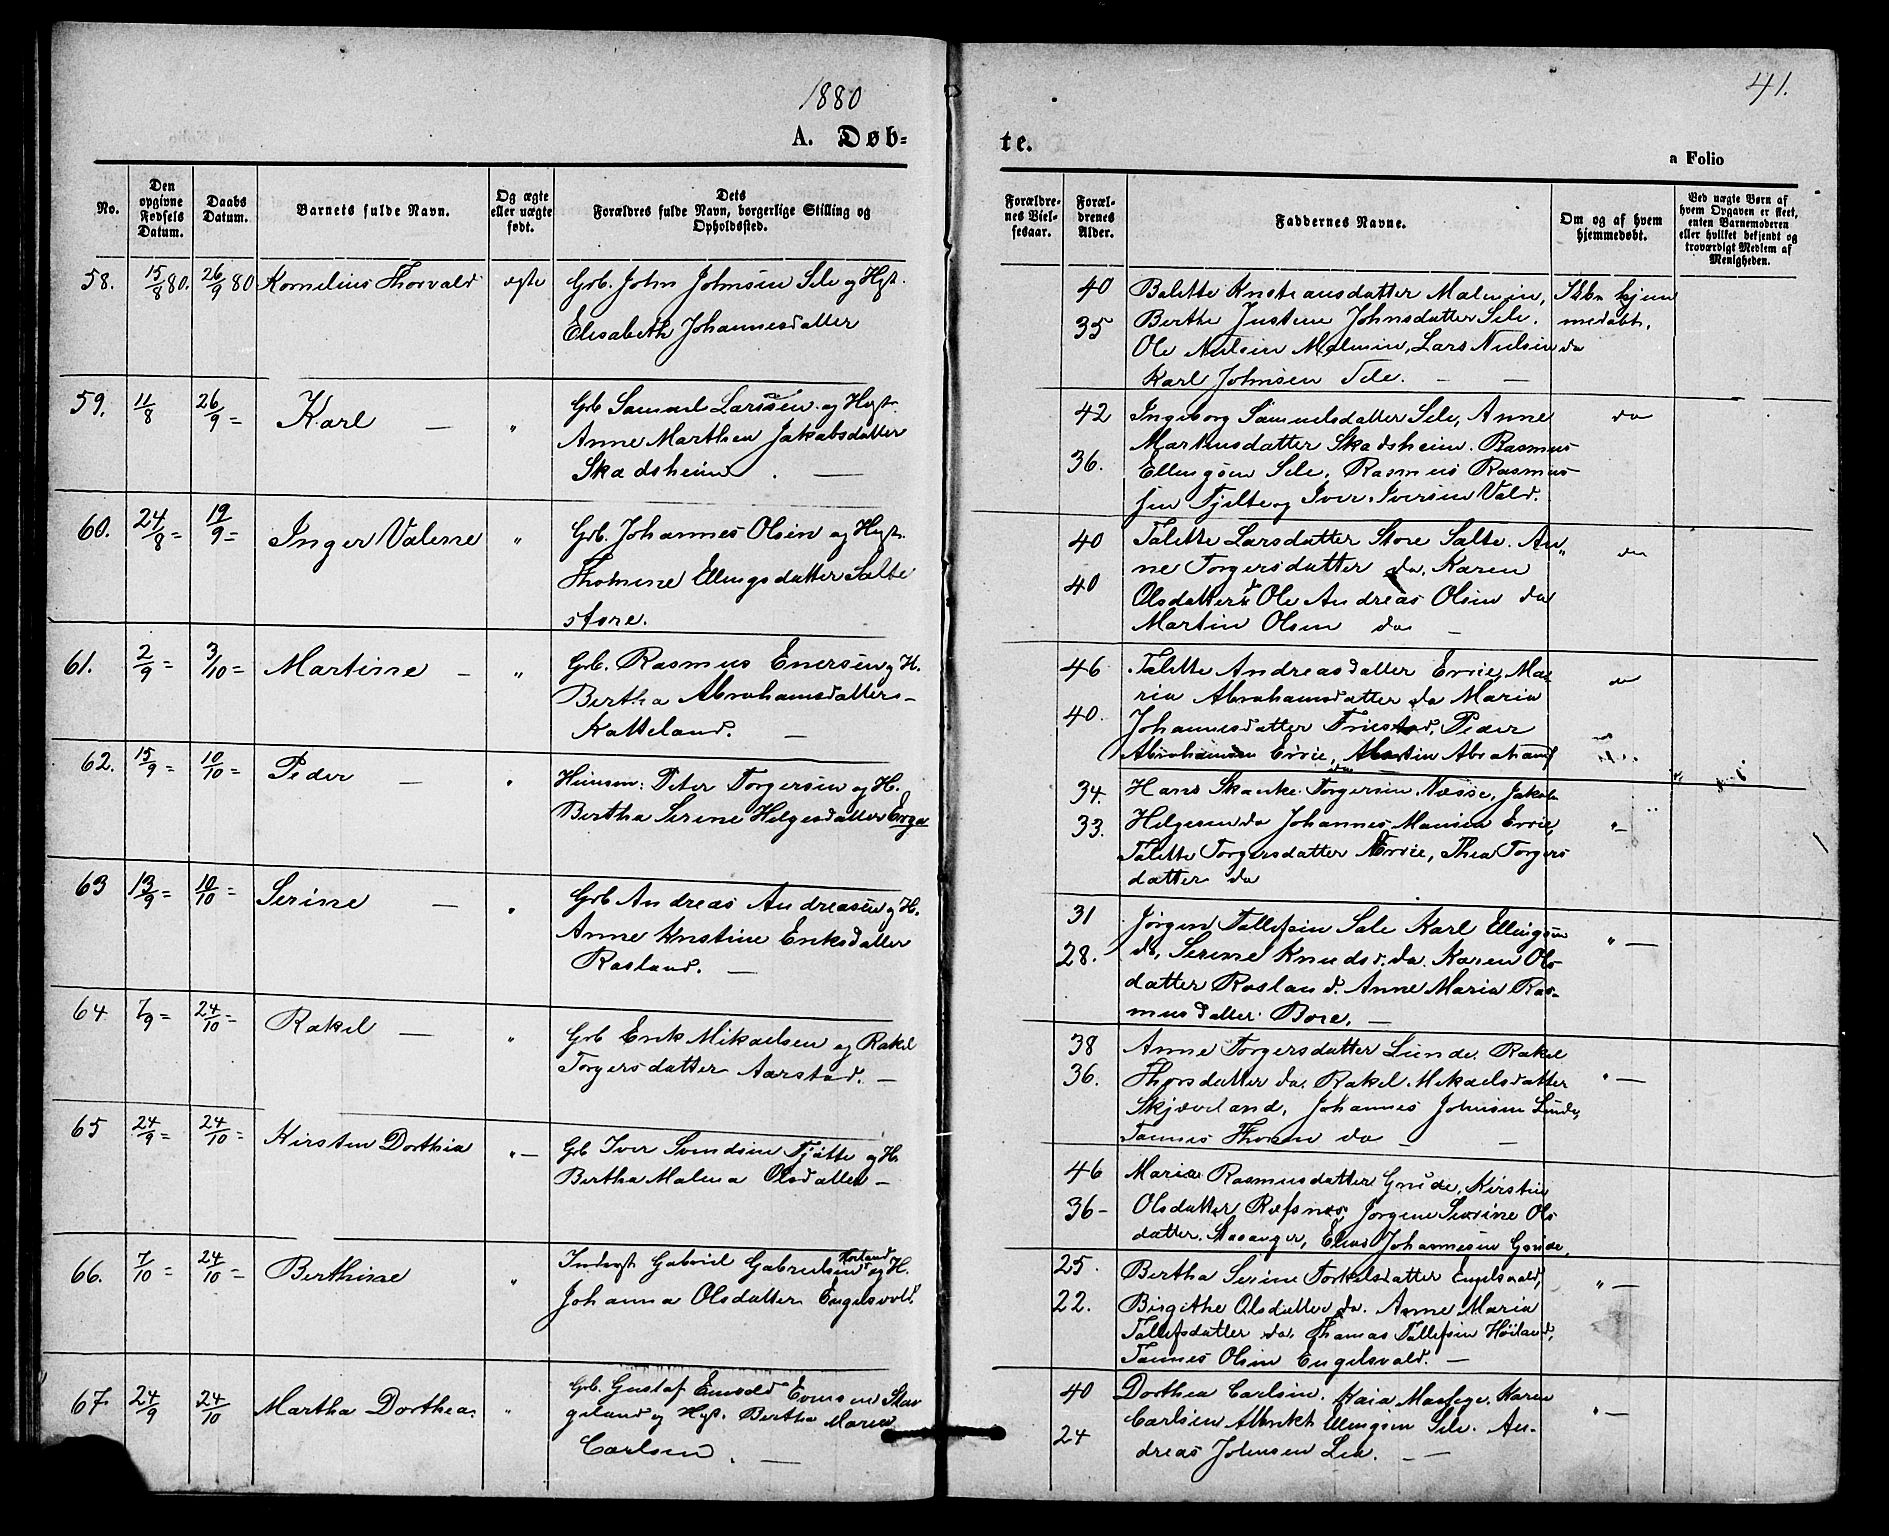 1880
41.
A. Døb-
te.
a Folio
No.
Den opgivne Fødsels Datum.
Daabs Datum.
Barnets fulde Navn.
Og ægte eller uægte født.
Dets Forældres fulde Navn, borgerlige Stilling og Opholdssted.
Forældrenes Vielsesaar.
Forældrenes Alder.
Faddernes Navne.
Om og af hvem hjemmedøbt.
Ved uægte Børn af hvem Opgaven er skeet, enten Barnemoderen eller hvilket bekjendt og troværdigt Medlem af Menigheden.
58. 15/8 80. 26/9 80 Kornelius Thorvald ægte
Grb. John Johnsen Sele og Hust.
Elisabeth Johannesdatter
40
35
Berthe Justine Johnsdatter Sele.
Ole Nielsen Malmin, Lars Nielsen do
Karl Johnsen Sele. —
59. 11/8 26/9 = Karl — "
Grb Samuel Larssen og Hust.
Anne Marthea Jakobsdatter
Skadsheim. —
42
36.
Ingeborg Samuelsdatter Sele, Anne
Martinusdatter Skadsheim. Rasmus
Ellingsen Sele, Rasmus Rasmus-
sen Tjelte og Iver Iversen Vold.
do
60. 24/8 = 19/9 = Inger Valene "
Grb. Johannes Olsen og Hust.
Thomine Ellingsdatter Salte
store.
40
40
Talette Larsdatter Store Salte. An-
ne Torgersdatter do, Karen
Olsdatter do Ole Andreas Olsen do
Martin Olsen do —
do
61. 2/9 = 3/10 = Martine — "
Grb. Rasmus Enersen og H.
Bertha Abrahamsdatter -
Katteland. —
46
40.
Talette Andreasdatter Errie, Ma-
ria Abrahamsdatter do Maria
Johannesdatter Friestad, Peder
Abrahamsen Errie, Martin Abrahams
do
do
62. 15/9 = 10/10 = Peder — "
Huusm: Peter Torgersen og H.
Bertha Serine Helgesdatter Erga
34.
33.
Hans Skanke Torgersen Næsse, Jakob
Helgesen do Johannes Monsen Errie,
Talette Torgersdatter Errie, Thea Torgers
datter do
" —
63 13/9 = 10/10 = Serine — "
Grb Andreas Andreasen og H.
Anne Kristine Eriksdatter
Rosland. —
31
28.
Jørgen Tollefsen Sele Karl Ellingsen
do, Serine Knudsd. do. Karen Ols-
datter Rosland. Anne Maria Ras-
musdatter Bore. —
" —
64 7/9 = 24/10 = Rakel — "
Grb Erik Mikaelsen og Rakel
Torgersdatter Aarstad. —
38
36.
Anne Torgersdatter Lunde. Rakel
Thorsdatter do. Rakel Mikaelsdatter
Skjæveland, Johannes Johnsen Lunde,
Tønnes Thorsen do —
" —
65 24/9 = 24/10 = Kirsten Dorthea " —
Grb Iver Svendsen Tjøtte og H.
Bertha Malena Olsdatter —
46
36 -
Maria Rasmusdatter Grude, Kirstine
Olsdatter Refsnes, Jørgine Severine Ols
datter Stavanger, Elias Johannesen Grude,
66. 7/10 = 24/10 = Berthine "
Inderst Gabriel Gabrielsen og H.
Johanna Olsdatter Engelsvold.
25.
22.
Bertha Serine Torkelsdatter Engelsvold,
Birgithe Olsdatter do. Anne Maria
Tollefsdatter do, Thomas Tollefsen Høiland,
Tønnes Olsen Engelsvold. —
" —
67 24/9 24/10 Martha Dorthea. "
geland og Hust. Bertha Maria
Carlsen. —
40
24
Dorthea Carlsen. Kaia Maasege. Karen
Carlsen Albrikt Ellingsen Sele. An-
dreas Johnsen Lea. —
" —